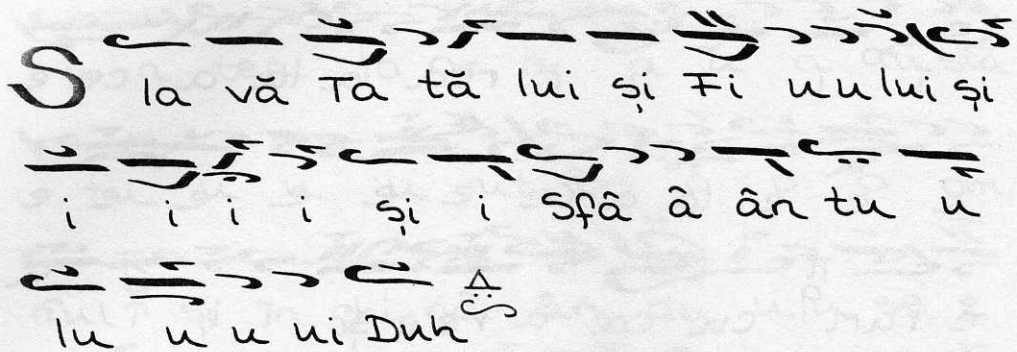 Sla vă Ta tă lui și Fi u u lui și
i i i i și i Sfâ â ân tu u
lu u u ui Duh